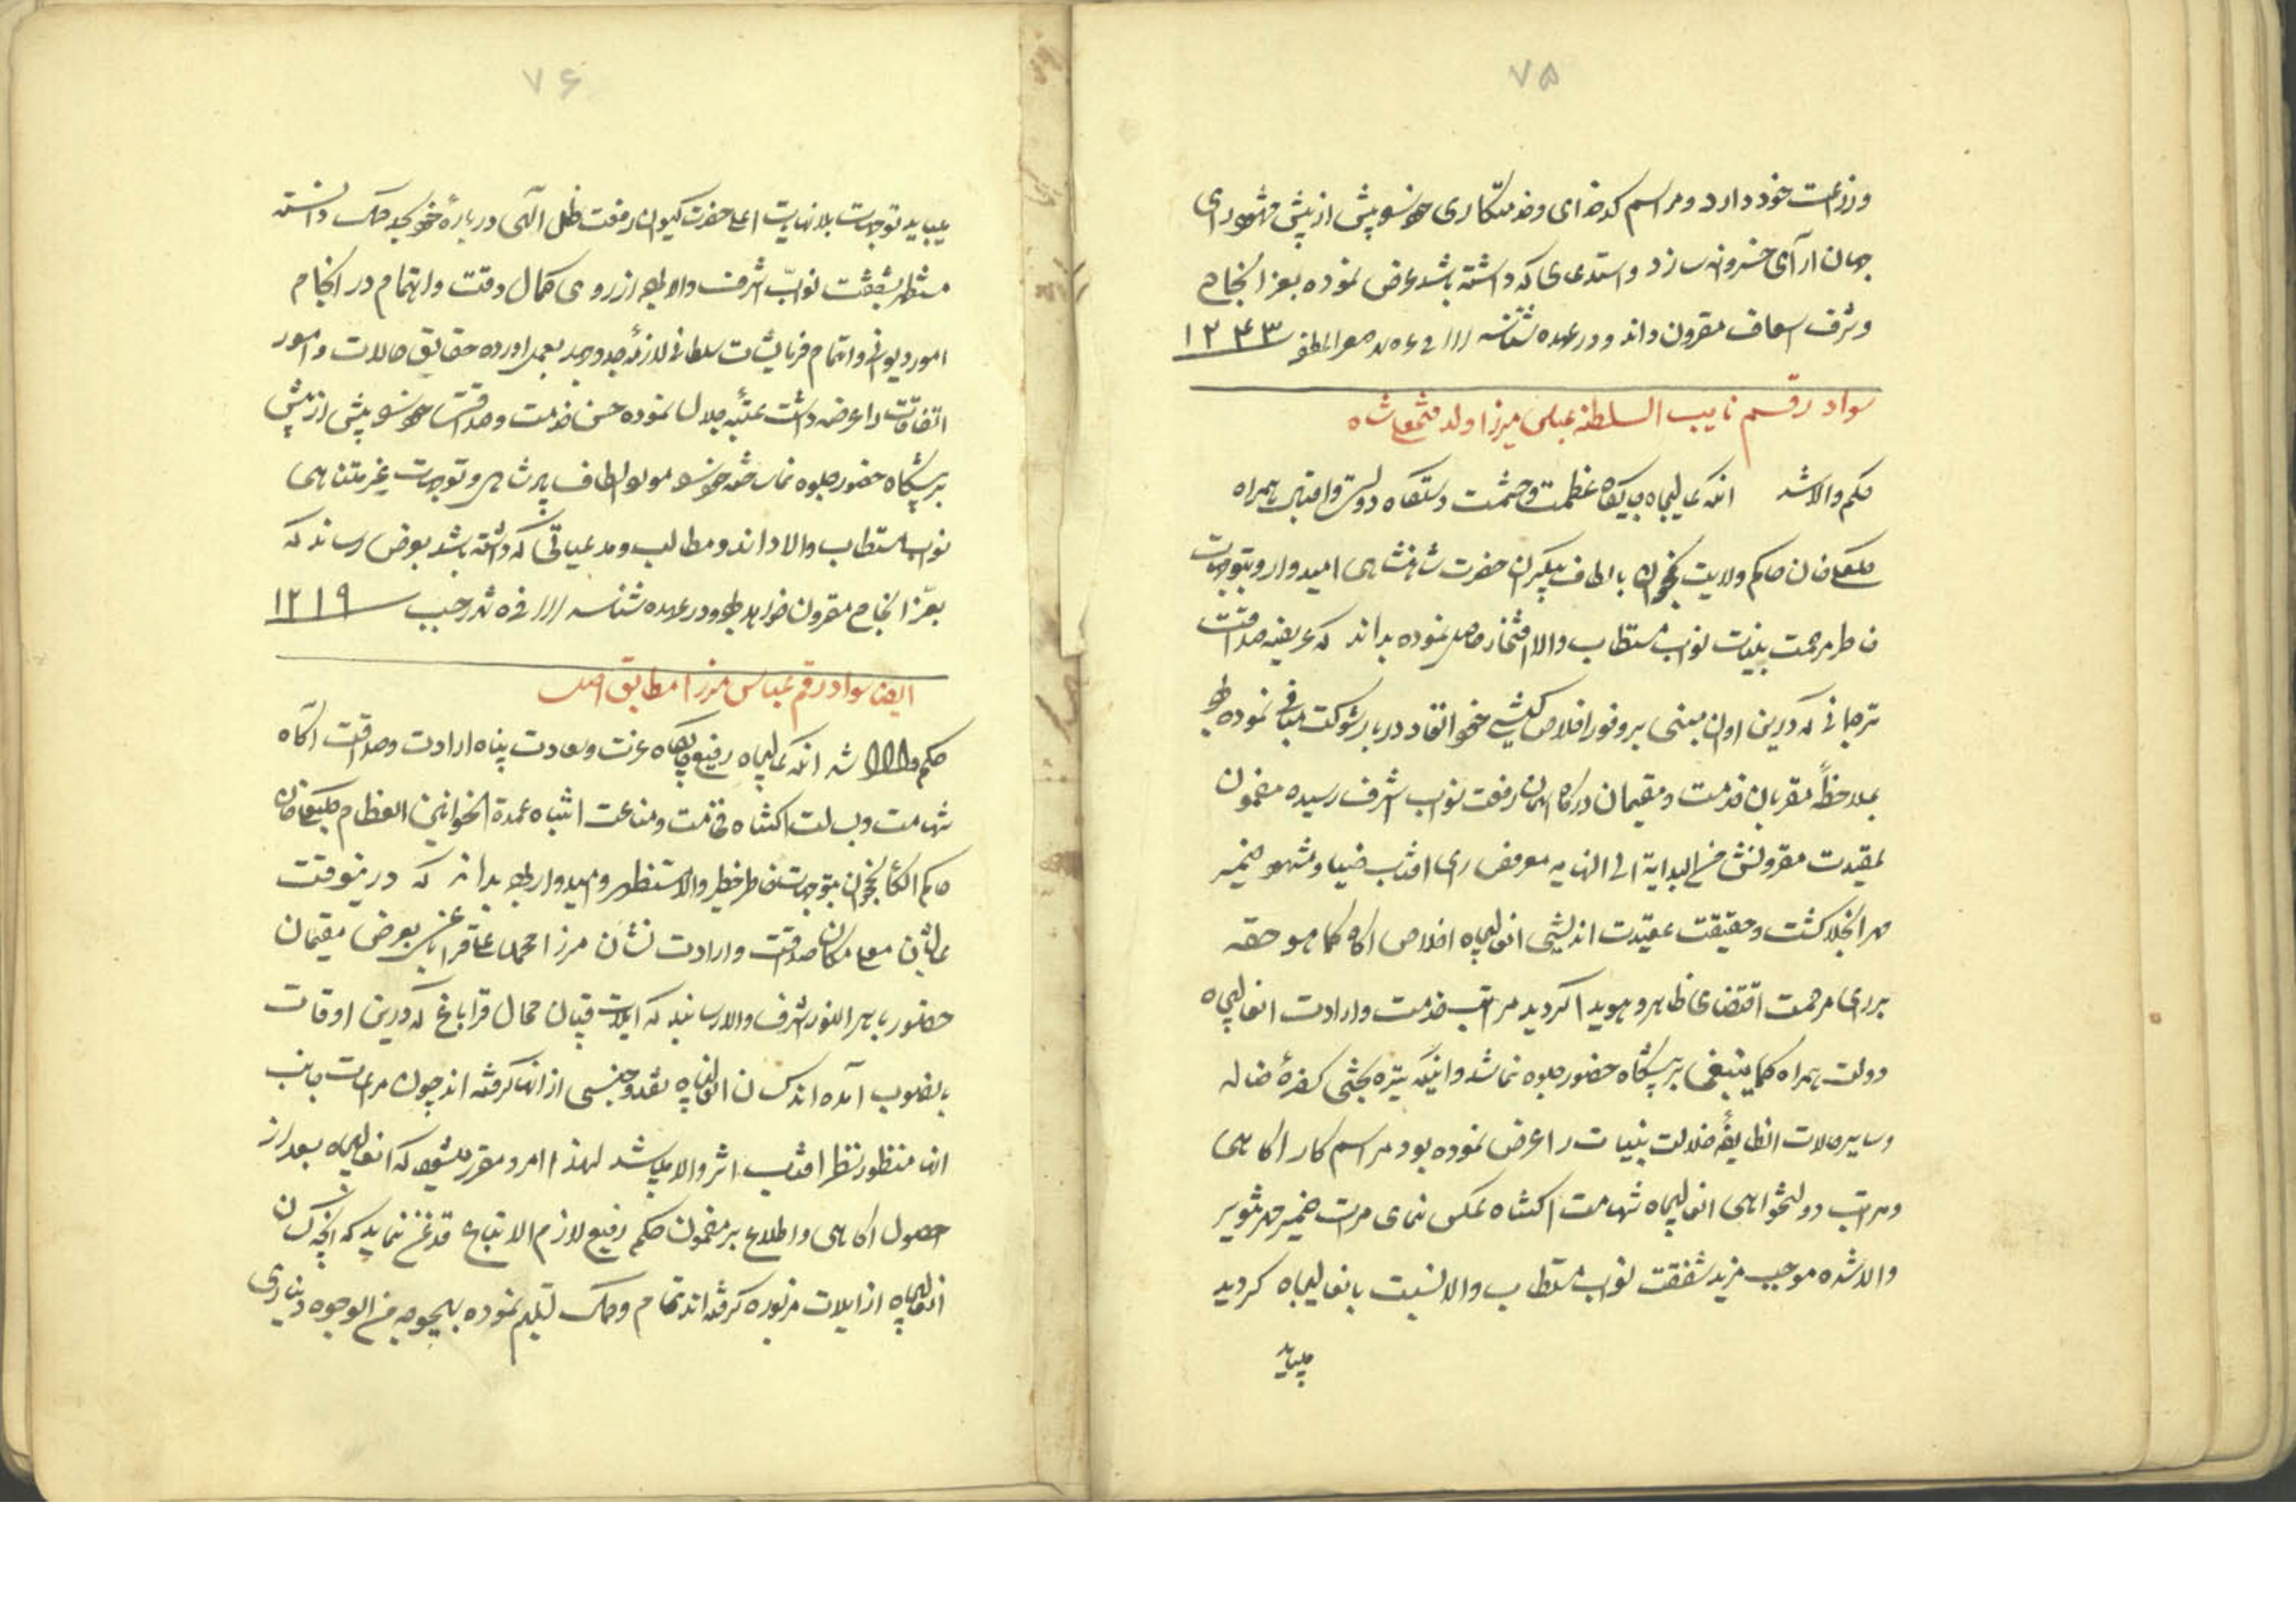 ۷۵
وزراعت خود دارد ومراسم کدخدائی وخدمتکاری خود پیش از پیش مشهود رای
جهان آرای خسروانه سازد واستدعائی که داشته باشد عرض نموده بعز انجام
وشرف اسعاف مقرون داند ودر عهده شناسند فی شهر صفر المظفر ۱۲۴۳
سواد رقم نایب السلطنه عباس میرزا ولد فتحعلی شاه
حکم والا شد آنکه عالیجاه جایگاه عظمت وحشمت دستگاه دولت واقبال همراه
کلبعلی خان حاکم ولایت نخجوان بالطاف بیکران حضرت شاهنشاهی امیدوار وبتوجهات
خاطر مرحمت بنیات نواب مستطاب والا افتخار حاصل نموده بداند که عریضه صداقت
ترجمانی که درین اوان مبنی بر وفور اخلاص کیشی خود انفاد دربار شوکت مبانی نموده بود
بملاحظهٔ مقربان خدمت ومقیمان درگاه آسمان رفعت نواب اشرف رسیده مضمون
عقیدت مقرونش من البدایة الی النهایه معروض رای آفتاب ضیا ومشهود ضمیر
مهر انجلا گشت وحقیقت عقیدت اندیشی آنعالیجاه اخلاص آگاه کما هو حقه
بر رای مرحمت اقتضای ظاهر وهویدا گردید مراتب خدمت وارادت آنعالیجاه
دولت همراه کما ینبغی بر پیشگاه حضور جلوه نما شد واینکه تیره بختی کفرهٔ ضاله
وسایر حالات انطایفهٔ ضلالت بنیات را عرض نموده بود مراسم کار آگاهی
ومراتب دولتخواهی آنعالیجاه شهامت اکتناه عکس نمای مرآت ضمیر مهر تنویر
والا شده موجب مزید شفقت نواب مستطاب والا نسبت بآنعالیجاه گردید
میباید
۷۶
میباید توجهات بلا نهایت اعلی حضرت کیوان رفعت ظل الهی درباره خود بحد کمال دانسته
مستظهر بشفقت نواب اشرف والا بوده از روی کمال دقت واهتمام در انجام
امور دیوانی واتمام فرمایشات سلطانی لازمه جد وجهد بعمل آورده حقایق حالات وامور
اتفاقات را عرضه داشت عتبه جلال نموده حسن خدمت وصداقت خود پیش از پیش
بر پیشگاه حضور جلوه نما ساخته خود را مورد الطاف پادشاهی وتوجهات غیر متناهی
نواب مستطاب والا داند ومطالب ومدعیاتی که داشته باشد بعرض رساند که
بعز انجام مقرون خواهد بود ودر عهده شناسند فی شهر رجب ۱۲۱۹
ایضا سواد رقم عباس میرزا مطابق اصل
حکم والا شد آنکه عالیجاه رفیع جایگاه عزت وسعادت پناه ارادت وصداقت آگاه
شهامت وبسالت اکتناه فخامت ومناعت انتباه عمدة الخوانین العظام کلبعلی خان
حاکم الکای نخجوان بتوجهات خاطر خطیر والا مستظهر وامیدوار بوده بداند که درینوقت
عالیشان معلی مکان صداقت وارادت نشان میرزا محمد علی قراباغی بعرض مقیمان
حضور باهر النور اشرف والا رسانید که ایلات قپان محال قراباغ که درین اوقات
باینصوب آمده اند کسان آنعالیجاه نقد وجنسی از آنها گرفته اند چون مراعات جانب
آنها منظور نظر آفتاب اثر والا میباشد لهذا امر ومقرر میشود که آنعالیجاه بعد از
حصول آگاهی واطلاع بر مضمون حکم رفیع لازم الاتباع قدغن نماید که آنچه کسان
آنعالیجاه از ایلات مزبوره گرفته اند تمام وکمال تسلیم نموده بهیچوجه من الوجوه دیناری